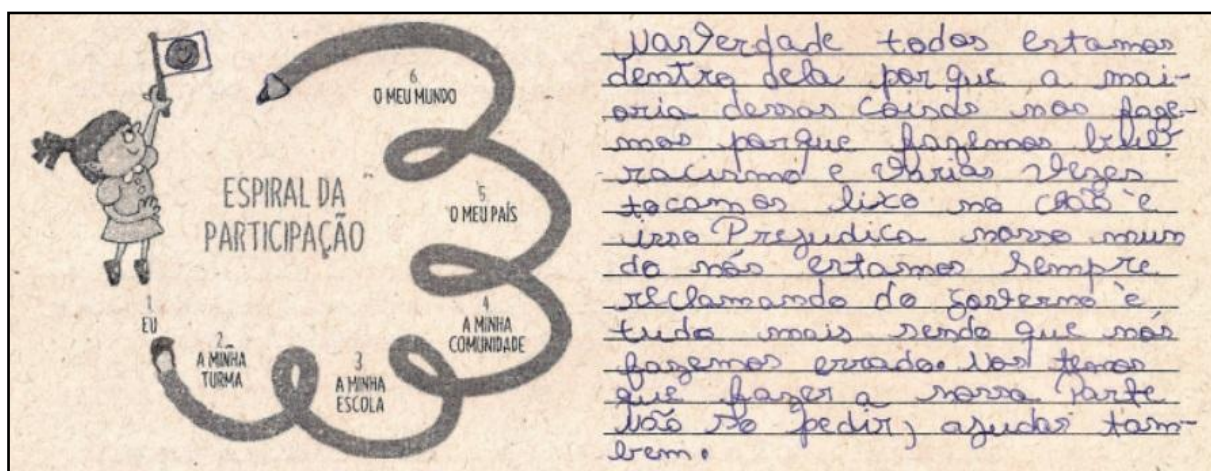 ESPIRAL DA
PARTICIPAÇÃO
1
EU
2
A MINHA
TURMA
3
A MINHA
ESCOLA
4
A MINHA
COMUNIDADE
5
O MEU PAÍS
6
O MEU MUNDO
Na verdade todos estamos
dentro dela por que a mai-
oria dessas coisas nos faze-
mos porque fazemos
racismo e várias vezes
tocamos lixo no chão e
isso Prejudica nosso mun
do nós estamos sempre
reclamando do governo e
tudo mais sendo que nós
fazemos errado. Nos temos
que fazer a nossa Parte
Não so pedir, ajudar tam-
bem.